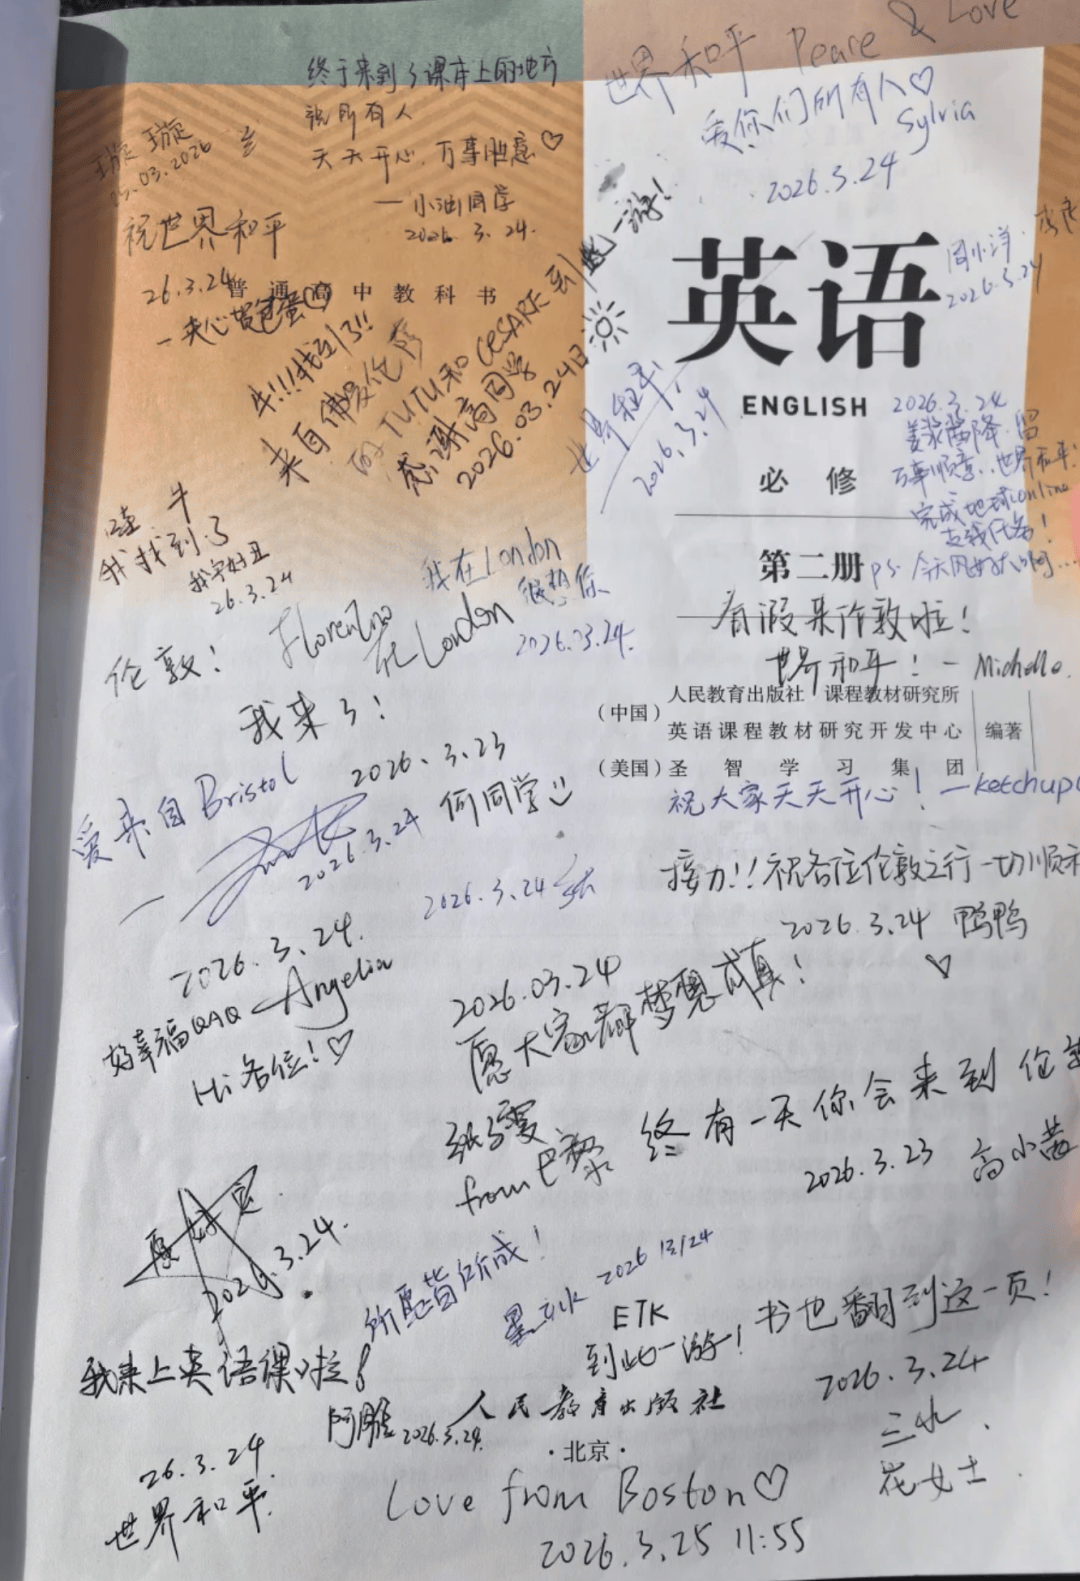 终于来到了课本上的地方
祝所有人
天天开心,万事胜意♡
—小油同学
2026.3.24.
世界和平 Peace & Love
爱你们所有人♡
Sylvia
2026.3.24
璇璇
25.03.2026
祝世界和平
26.3.24
—夹心荷包蛋
普通高中教科书
牛!!!我到了!!
来自佛罗伦萨
的TUTU和CESARE到此一游!
感谢高同学
2026.03.24日
英语
ENGLISH
必修
第二册
周小洋
2026.3.24
世界和平!
2026.3.24
2026.3.24
万事顺意、世界和平!
完成地球online
支线任务!
ps.今天风好大啊...
哇 牛
我找到了
我字好丑
26.3.24
我在London
很想你
2026.03.24.
Florentino
在London
伦敦!
我来了!
2026.3.23
何同学
有假来伦敦啦!
世界和平!—Michelle.
(中国)
人民教育出版社 课程教材研究所
英语课程教材研究开发中心
(美国)圣智学习集团
编著
祝大家天天开心!—ketchup
爱来自Bristol
2026.3.24
2026.3.24
接力!!祝各位伦敦之行一切顺利
2026.3.24 鸭鸭
♡
2026.3.24.
好幸福QAQ —Angelia
Hi 各位!♡
2026.03.24
愿大家都梦想成真!
from巴黎
终有一天你会来到伦敦
2026.3.23 高小茜
2026.3.24.
所愿皆所成!
2026 3/24
ETK
到此一游!
书也翻到这一页!
2026.3.24
三水
花女士
我来上英语课啦!
26.3.24
世界和平.
2026.3.24.
人民教育出版社
·北京·
Love from Boston♡
2026.3.25 11:55